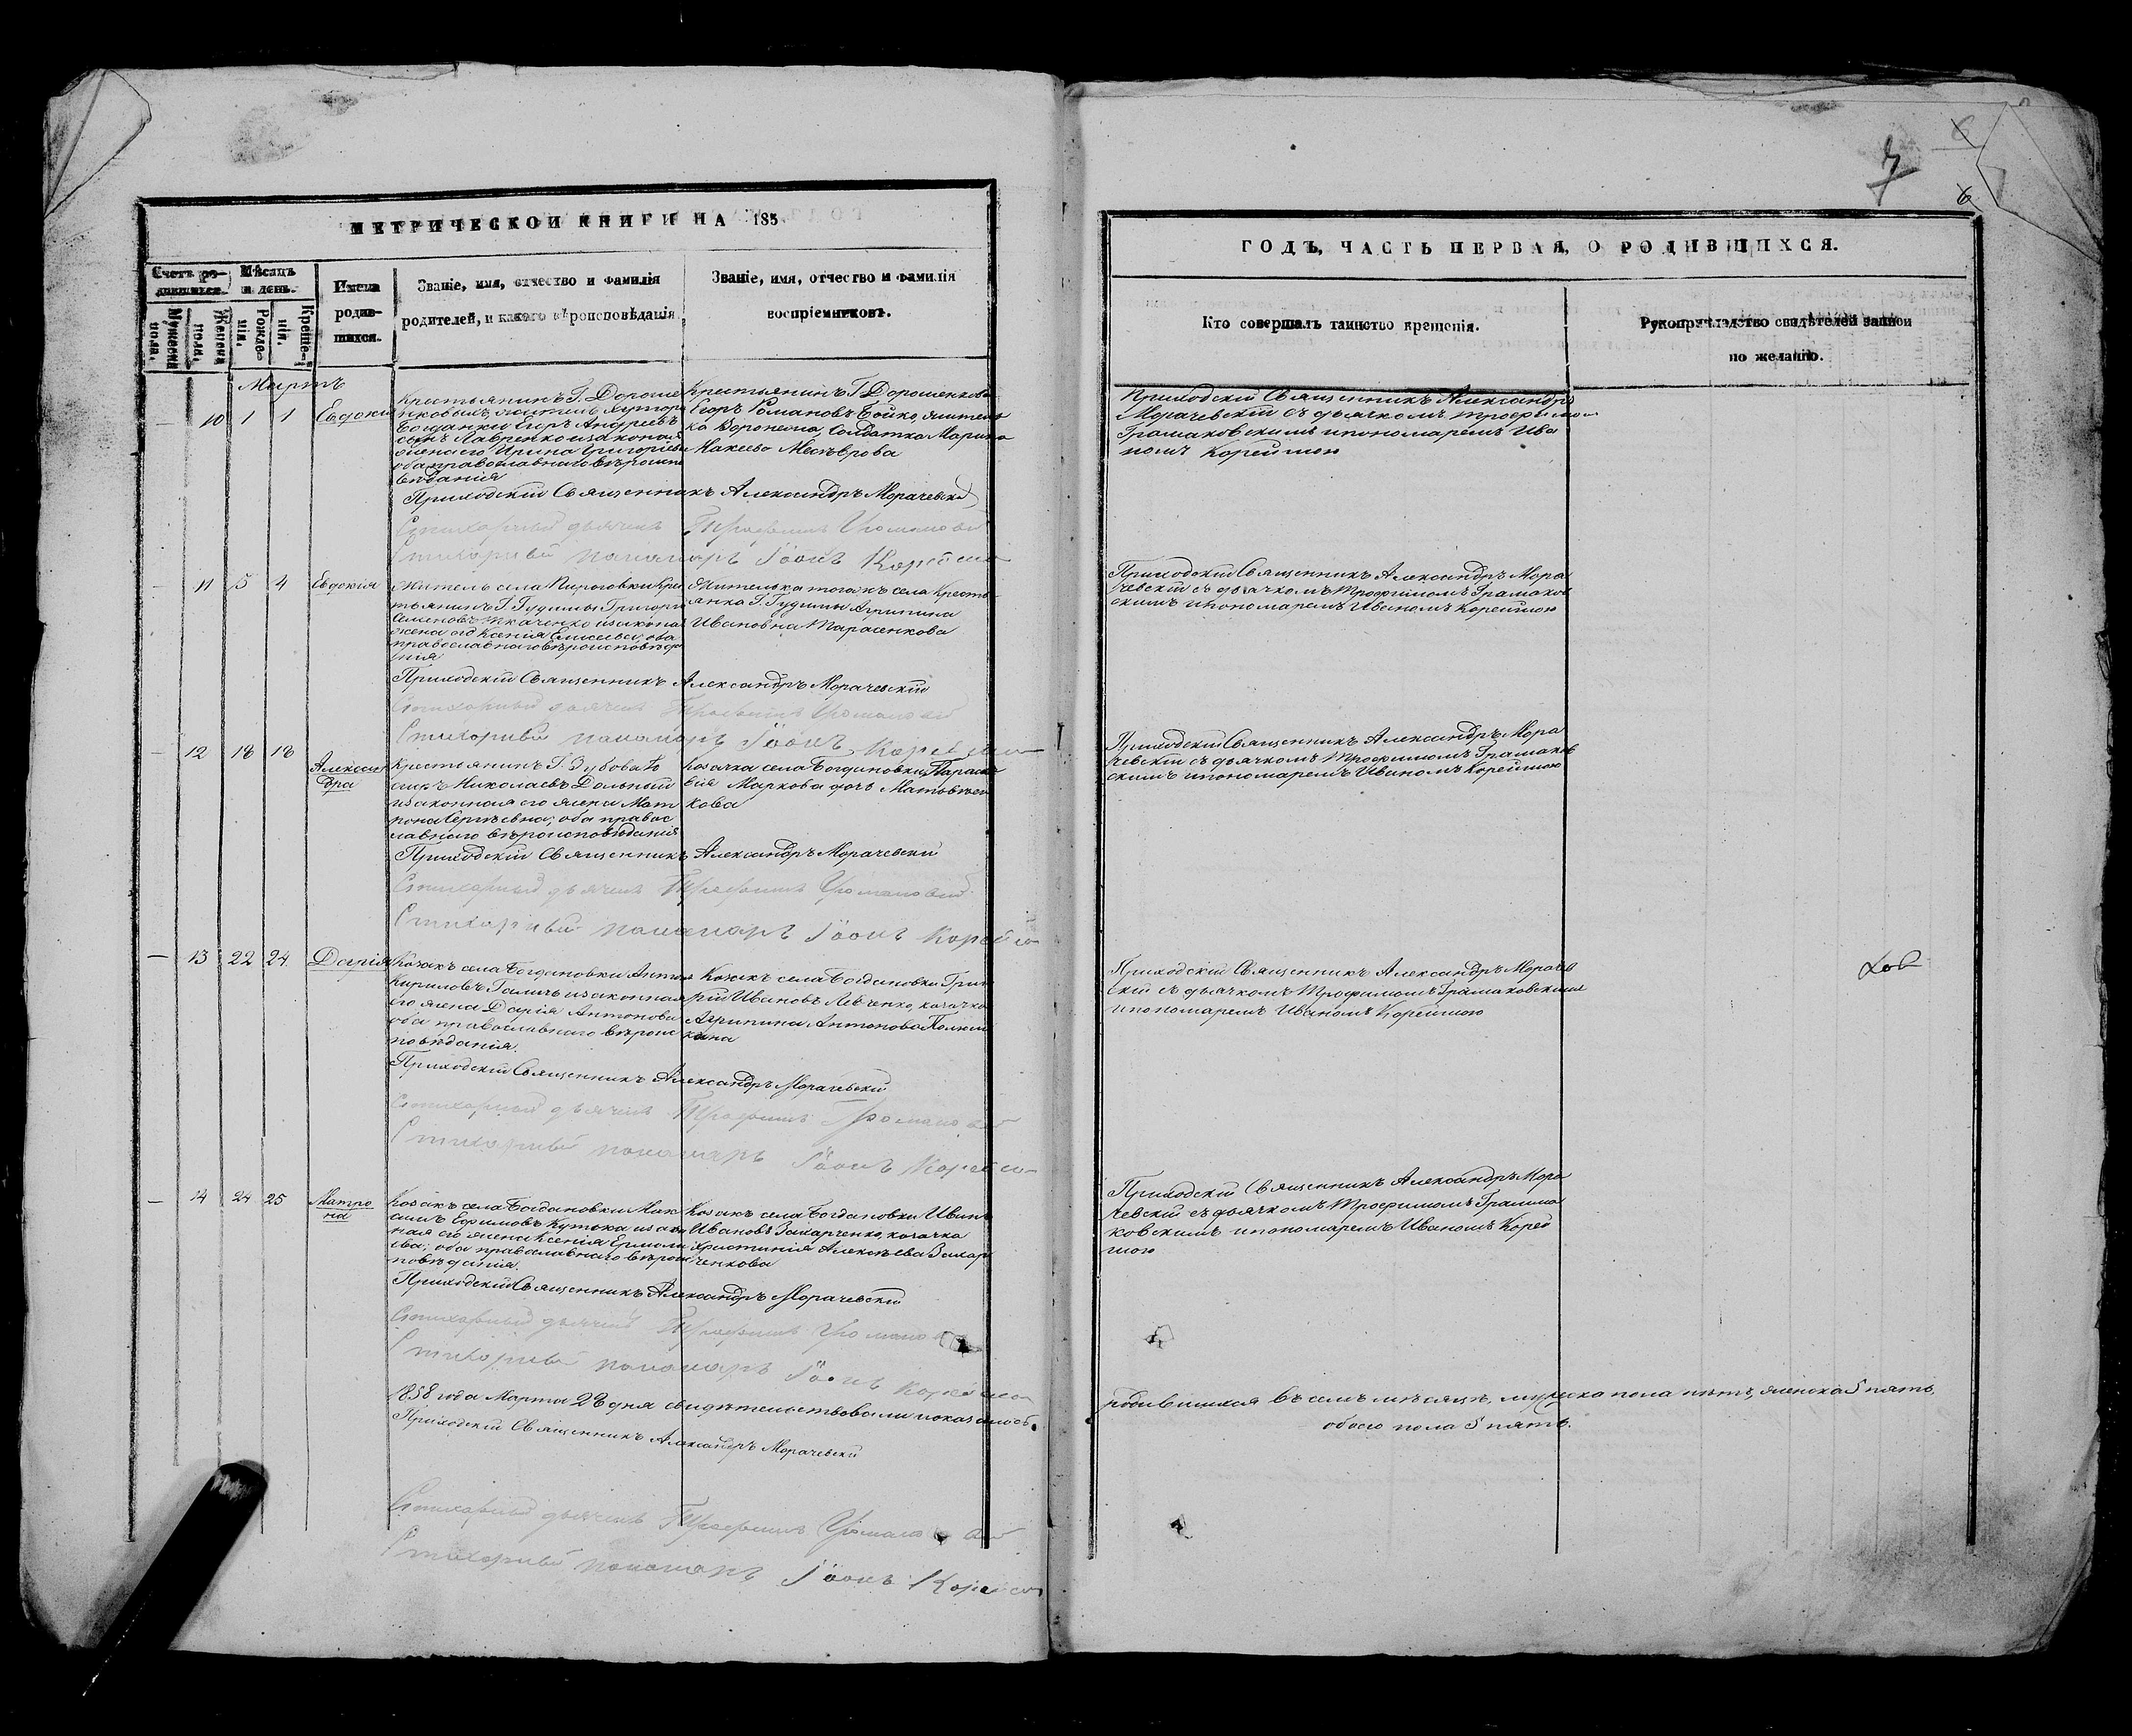 МЕТРИЧЕСКОЙ КНИГИ НА 185
Счетъ ро-
дившихся.
Мѣсяцъ
и день.
Мужеска
пола.
Женска
пола.
Рожде-
нія.
Креще-
нія.
Имена
родив-
шихся.
Званіе, имя, отчество и фамилія
родителей, и какого вѣроисповѣданія
Званіе, имя, отчество и фамилія
воспріемниковъ.
Мартъ
— 10 1 1 Евдокія
Крестьянинъ Г. Дороше
нковыхъ, житель хутора
Богданки Егоръ Андреевъ
сынъ Лавренко и законая
жена его Ирина Григорьева
оба православнаго вѣроиспо
вѣданія
Крестьянинъ Г. Дорошенкова
Егоръ Романовъ Бойко, жители
ка Воронежа, Солдатка Марина
Макеева
Приходскій Священникъ Александръ Морачевскій
Стихарный дьячекъ Трофимъ Громаковскій
Стихарный пономарь Іоанъ Корейша
— 11 5 4 Евдокія
Житель села Пироговки Кре
стьянинъ Г. Гудимы Григорій
Семеновъ Ткаченко и закона
жена его Ксенія Елисеева; оба
православнаго вѣроисповѣда
нія
Жителька тогожъ села Кресть
янка Г. Гудимы Агрипина
Ивановна Тарасенкова
Приходскій Священникъ Александръ Морачевскій
Стихарный дьячекъ Трофимъ Громаковскій
Стихарный пономарь Іоанъ Корейша
— 12 18 18 Алексан
дра
Крестьянинъ Г. Зубова
Николаевъ Дольный
и законная его жена Мат
рона Сергѣевна; оба правос
лавнаго вѣроисповѣданія
Козачка села Богдановки Параске
вія Маркова дочь Матвѣен
кова
Приходскій Священникъ Александръ Морачевскій
Стихарный дьячекъ Трофимъ Громаковскій
Стихарный пономарь Іоанъ Корейша
— 13 22 24 Дарія
Козакъ села Богдановки Антон
Кириловъ Галичь и законная
его жена Дарія Антонова
оба православнаго вѣроис
повѣданія.
Козакъ села Богдановки Григо
рій Ивановъ Левченко, козачка
Агрипина Антонова
Приходскій Священникъ Александръ Морачевскій
Стихарный дьячекъ Трофимъ Громаковскій
Стихарный пономарь Іоанъ Корейша
— 14 24 25 Матро
на
Козакъ села Богдановки Мак
симъ Ефимовъ Кутька и закон
ная его жена Ксенія Ермола
ева; оба православнаго вѣроис
повѣданія.
Козакъ села Богдановки Иванъ
Ивановъ Захарченко, козачка
Христинія Алексѣева Захар
ченкова
Приходскій Священникъ Александръ Морачевскій
Стихарный дьячекъ Трофимъ Громаковскій
Стихарный пономарь Іоанъ Корейша
1858 года Марта 28 дня свидѣтельствовали показаность
Приходскій Священникъ Александръ Морачевскій
Стихарный дьячекъ Трофимъ Громаковскій
Стихарный пономарь Іоанъ Корейша
7
6
6
ГОДЪ, ЧАСТЬ ПЕРВАЯ, О РОДИВШИХСЯ.
Кто совершалъ таинство крещенія.
Рукоприкладство свидѣтелей записи
по желанію.
Приходскій Священникъ Александръ
Морачевскій съ дьячкомъ Трофимом
Грамаковскимъ и пономаремъ Ива
номъ Корейшою
Приходскій Священникъ Александръ Мора
чевскій съ дьячкомъ Трофимомъ Грамаков
скимъ и пономаремъ Иваномъ Корейшою
Приходскій Священникъ Александръ Мора
чевскій съ дьячкомъ Трофимомъ Грамаков
скимъ и пономаремъ Иваномъ Корейшою
Приходскій Священникъ Александръ Морачев
скій съ дьячкомъ Трофимомъ Грамаковскимъ
и пономаремъ Иваномъ Корейшою
Приходскій Священникъ Александръ Мора
чевскій съ дьячкомъ Трофимомъ Грамма
ковскимъ и пономаремъ Иваномъ Корей
шою
родившихся въ семъ мѣсяцѣ, мужеска пола нѣтъ, женска 5 пять,
обоего пола 5 пять.